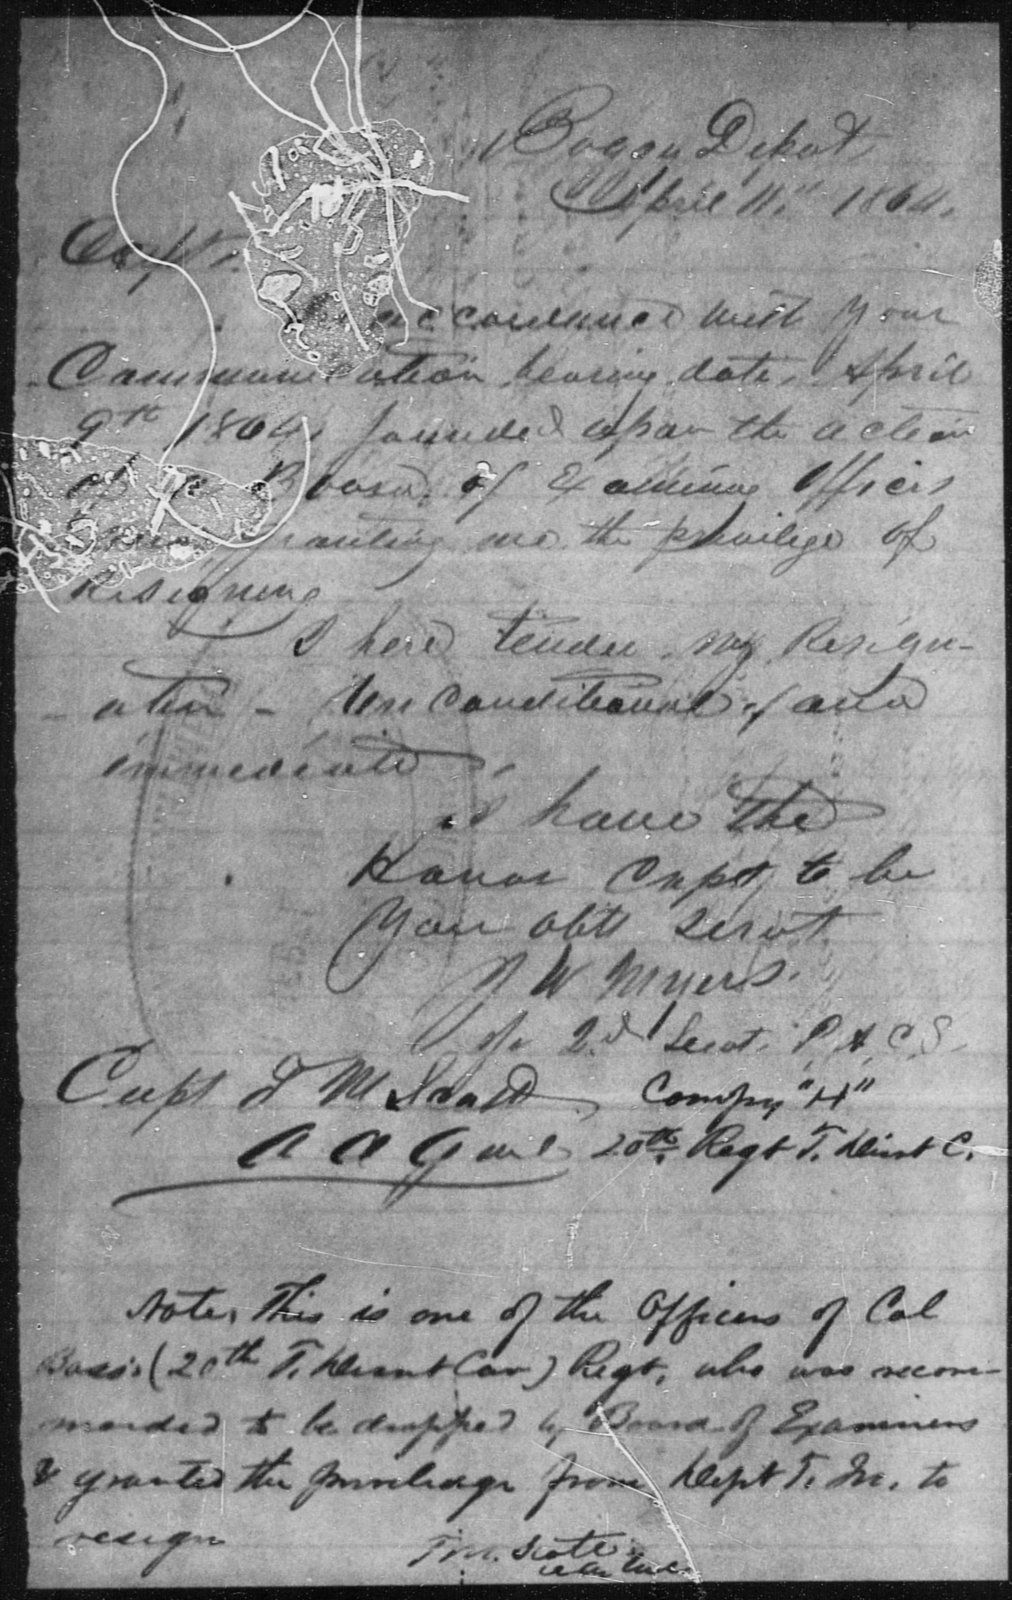 Boggy Depot
April 11th 1864.
Capt.
accordance with Your
Communication bearing date, April
9th 1864, founded upon the action
Board, of Examining Officers
granting me the privilege of
Resigning
I here tender my Resign-
- ation - Unconditional, and
immediate,
I have the
Honor Capt, to be
Your obtt Servt
J W Myers.
Jr 2d Lieut. P. A. C. S.
Capt T M Scott, Compy "H"
A A Genl 20th Regt T. Dismt C.
Note, This is one of the Officers of Col
Bass's (20th T. Dismt Cav) Regt, who was recom-
mended to be dropped by Board of Examiners
& granted the privilege from Dept T. to
resign
T M. Scott